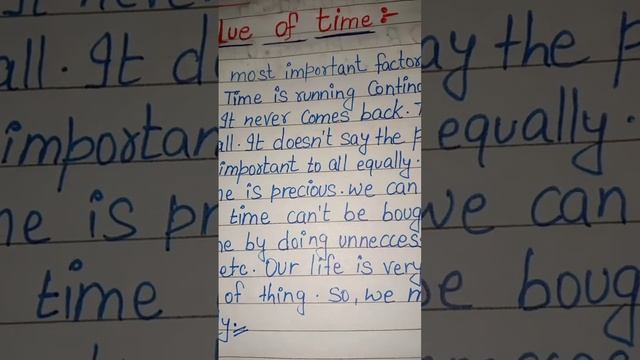 lue of time:-
most important factor
Time is running Contin
It never comes back. T
all. It doesn't say the p
important to all equally.
ne is precious. we can
time can't be boug
e by doing unnecces
etc. Our life is very
of thing. So, we m
y.